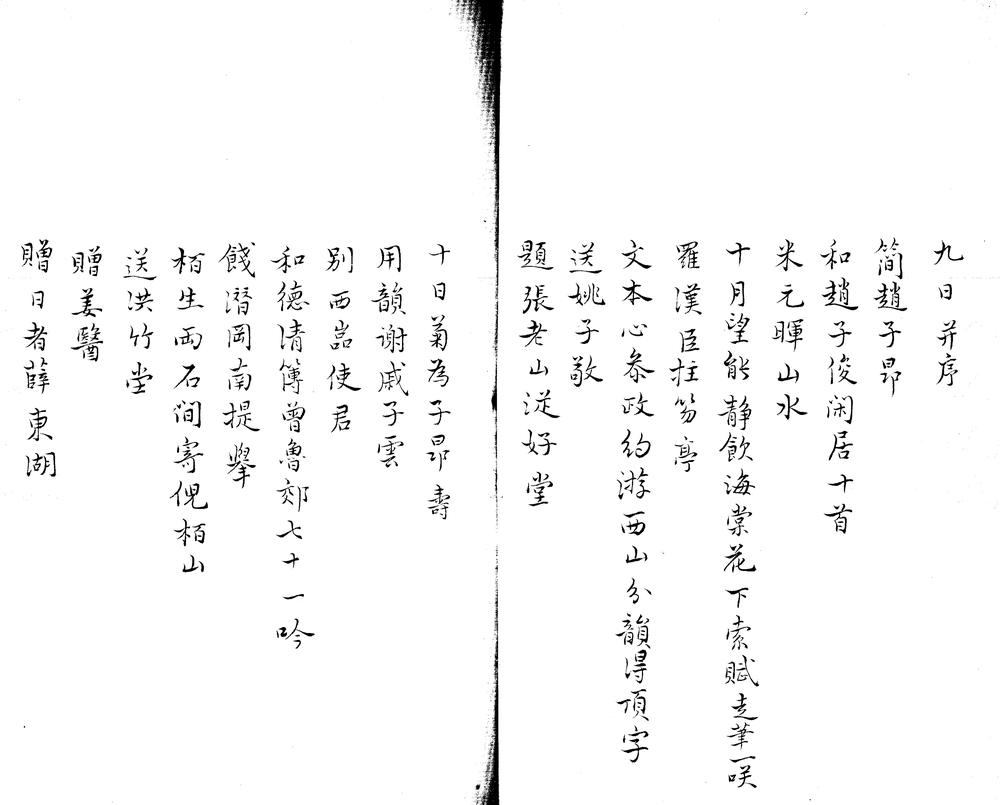 九日并序
简趙子昂
和趙子俊闲居十首
米元暉山水
十月望能静飲海棠花下索賦走筆一咲
羅漢臣拄笏亭
文本心叅政約游西山分韻得項字
送姚子敬
題張老山従好堂
十日菊為子昂壽
用韻谢戚子雲
别西嵓使君
和德清簿曾魯郊七十一吟
餞潛岡南提舉
栢生両石间寄倪栢山
送洪竹堂
贈姜醫
贈日者薛東湖